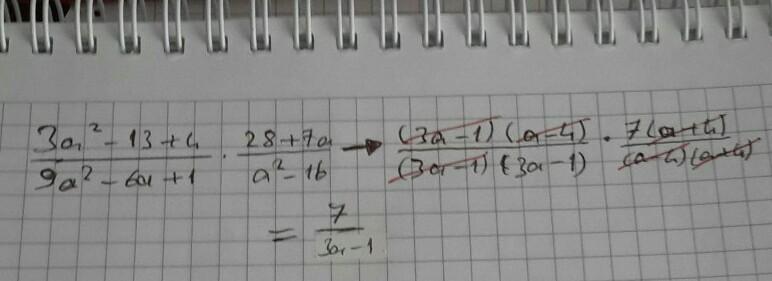 (3a² - 13 + 4)/(9a² - 6a + 1) · (28 + 7a)/(a² - 16) → ((3a - 1)(a - 4))/((3a - 1)(3a - 1)) · (7(a + 4))/((a - 4)(a + 4))
= 7/(3a - 1)